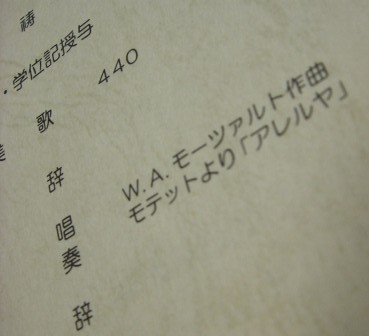 祷
・学位記授与
歌 440
辞
唱 W.A.モーツァルト作曲
モテットより「アレルヤ」
奏
辞